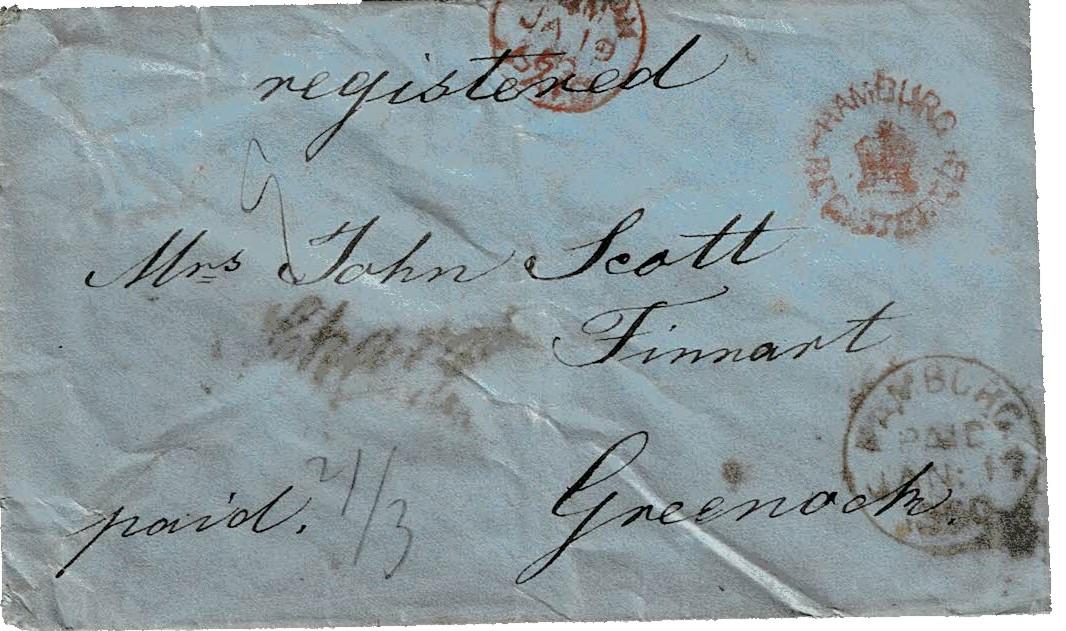 JA 19
registered
HAMBURG
REGISTERED
Mrs John Scott
Finnart
HAMBURG
PAID
JAN: 17
paid. 2/3
Greenock.